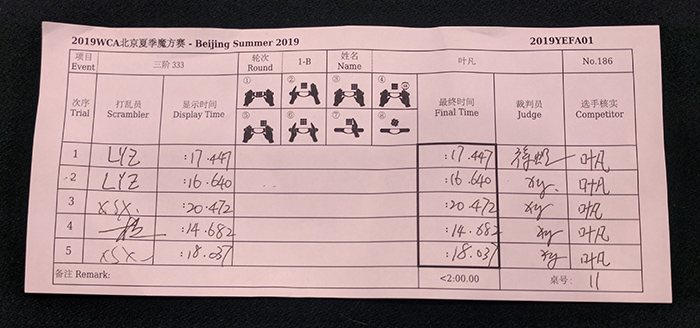 2019WCA北京夏季魔方赛 - Beijing Summer 2019 2019YEFA01
项目 Event 三阶 333 轮次 Round 1-B 姓名 Name 叶凡 No.186
次序 Trial 打乱员 Scrambler 显示时间 Display Time ① ② ③ ④ ⑤ ⑥ ⑦ ⑧ 最终时间 Final Time 裁判员 Judge 选手核实 Competitor
1 LYZ :17.447 :17.447 叶凡
2 LYZ :16.640 :16.640 xy. 叶凡
3 XSX. :20.472 :20.472 xy 叶凡
4 :14.682 :14.682 xy 叶凡
5 XSX :18.037 :18.037 xy 叶凡
备注 Remark: <2:00.00 桌号: 11